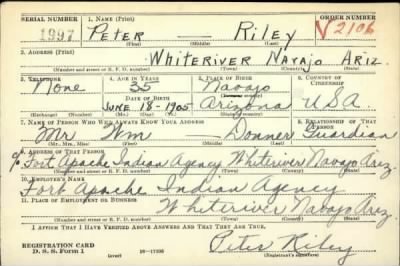 SERIAL NUMBER 1. NAME (Print) ORDER NUMBER
1997 PETER — RILEY V2106
(First) (Middle) (Last)
2. ADDRESS (Print)
WHITERIVER NAVAJO ARIZ.
(Number and street or R. F. D. number) (Town) (County) (State)
3. TELEPHONE 4. AGE IN YEARS 5. PLACE OF BIRTH 6. COUNTRY OF CITIZENSHIP
None 35 Navajo
DATE OF BIRTH (Town or county)
JUNE 18-1905 Arizona U.S.A.
7. NAME OF PERSON WHO WILL ALWAYS KNOW YOUR ADDRESS 8. RELATIONSHIP OF THAT PERSON
Mr Wm Donner Guardian
(Mr., Mrs., Miss) (First) (Middle) (Last)
9. ADDRESS OF THAT PERSON
c/o Fort Apache Indian Agency Whiteriver Navajo Ariz
(Number and street or R. F. D. number) (Town) (County) (State)
10. EMPLOYER'S NAME
Fort Apache Indian Agency
11. PLACE OF EMPLOYMENT OR BUSINESS
Whiteriver Navajo Ariz.
(Number and street or R. F. D. number) (Town) (County) (State)
I AFFIRM THAT I HAVE VERIFIED ABOVE ANSWERS AND THAT THEY ARE TRUE.
Peter Riley
REGISTRATION CARD
D. S. S. Form 1 (over) (Registrant's signature)